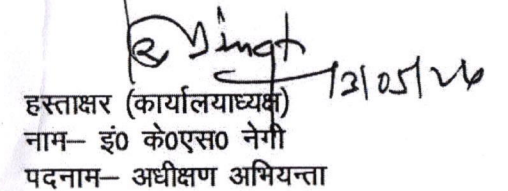 Singh
13/05/26
हस्ताक्षर (कार्यालयाध्यक्ष)
नाम– इं0 के0एस0 नेगी
पदनाम– अधीक्षण अभियन्ता